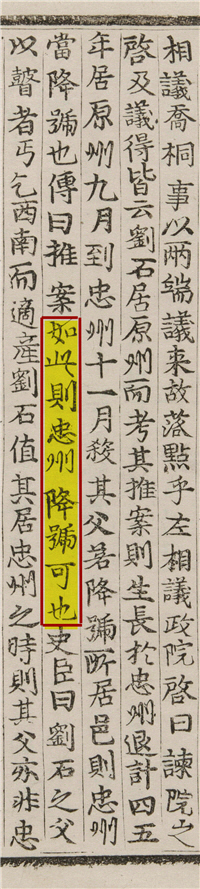 相議喬桐事以兩端議来故落點乎左相議政院啓曰諫院之
啓及議得皆云劉石居原州而考其推案則生長於忠州退計四五
年居原州九月到忠州十一月殺其父若降號所居邑則忠州
當降號也傳曰推案如此則忠州降號可也史臣曰劉石之父
以瞽者丐乞西南而適產劉石值其居忠州之時則其父亦非忠